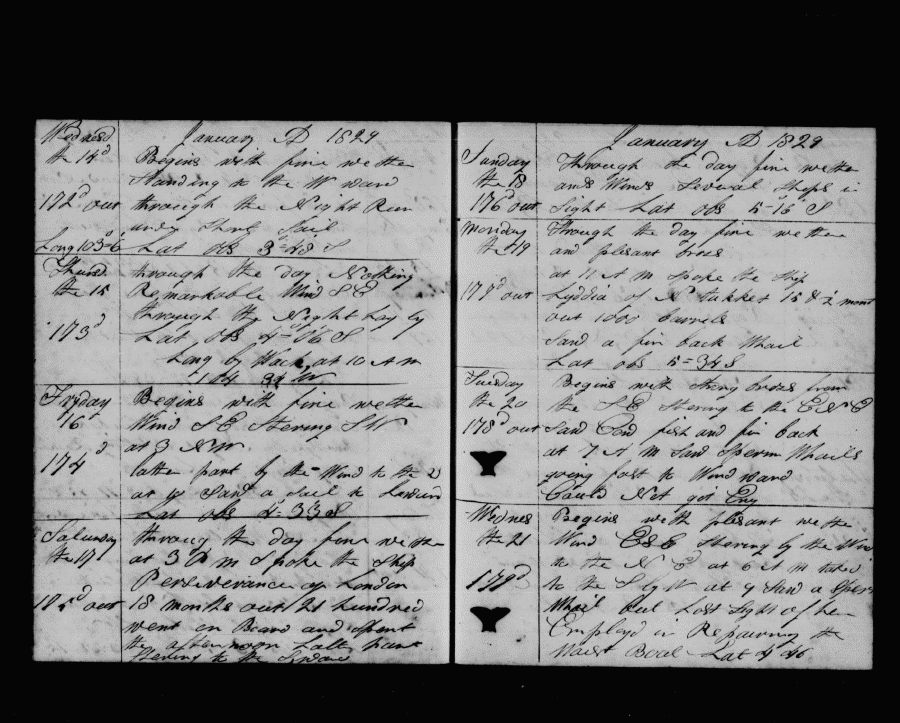 Wednesd
the 14d
172d out
Long 103=6
January AD 1829
Begins with fine wethe
Standing to the W ward
through the Night Run
undr Short Sail
Lat obs 3=48 S
Thursd
the 15
173d
through the day Nothing
Remarkable Wind SE
through the Night Lay by
Lat obs 4=06 S
Long by at 10 AM
104 W
Fryday
16
174d
Begins with fine wethe
Wind SE Stering SW
at 3 NW
latter part by the Wind to the
at Saw a Sail to
Lat obs 4=33 S
Saturday
the 17
175d out
through the day fine wethe
at 3 P m Spoke the Ship
Perseverance of London
18 months out 21 hundred
went on Board and Spent
the afternoon Latte part
Stering to the
January AD 1829
Sunday
the 18
176d out
Through the day fine wethe
and Winds Several Ships in
Sight Lat obs 5=16 S
Monday
the 19
177d out
Through the day fine wethe
and plesant brees
at 11 A M Spoke the Ship
Lyddia of Nantukket 15 & ½ mont
out 1000 barrels
Saw a fin back Whail
Lat obs 5=34 S
Tuesday
the 20
178d out
Begins with Strong brees from
the SE Stering to the ENE
Saw Cow fish and fin back
at 7 A M Saw Sperm Whails
going fast to Windward
Could Not git Eny
Wednes
the 21
179d
Begins with plesant wethe
Wind ESE Stering by the Win
to the NE at 6 A M
to the S by W at 9 Saw a Sper
Whail but Lost Sight of her
Employd in Repairing the
Waist Boat Lat 4 46